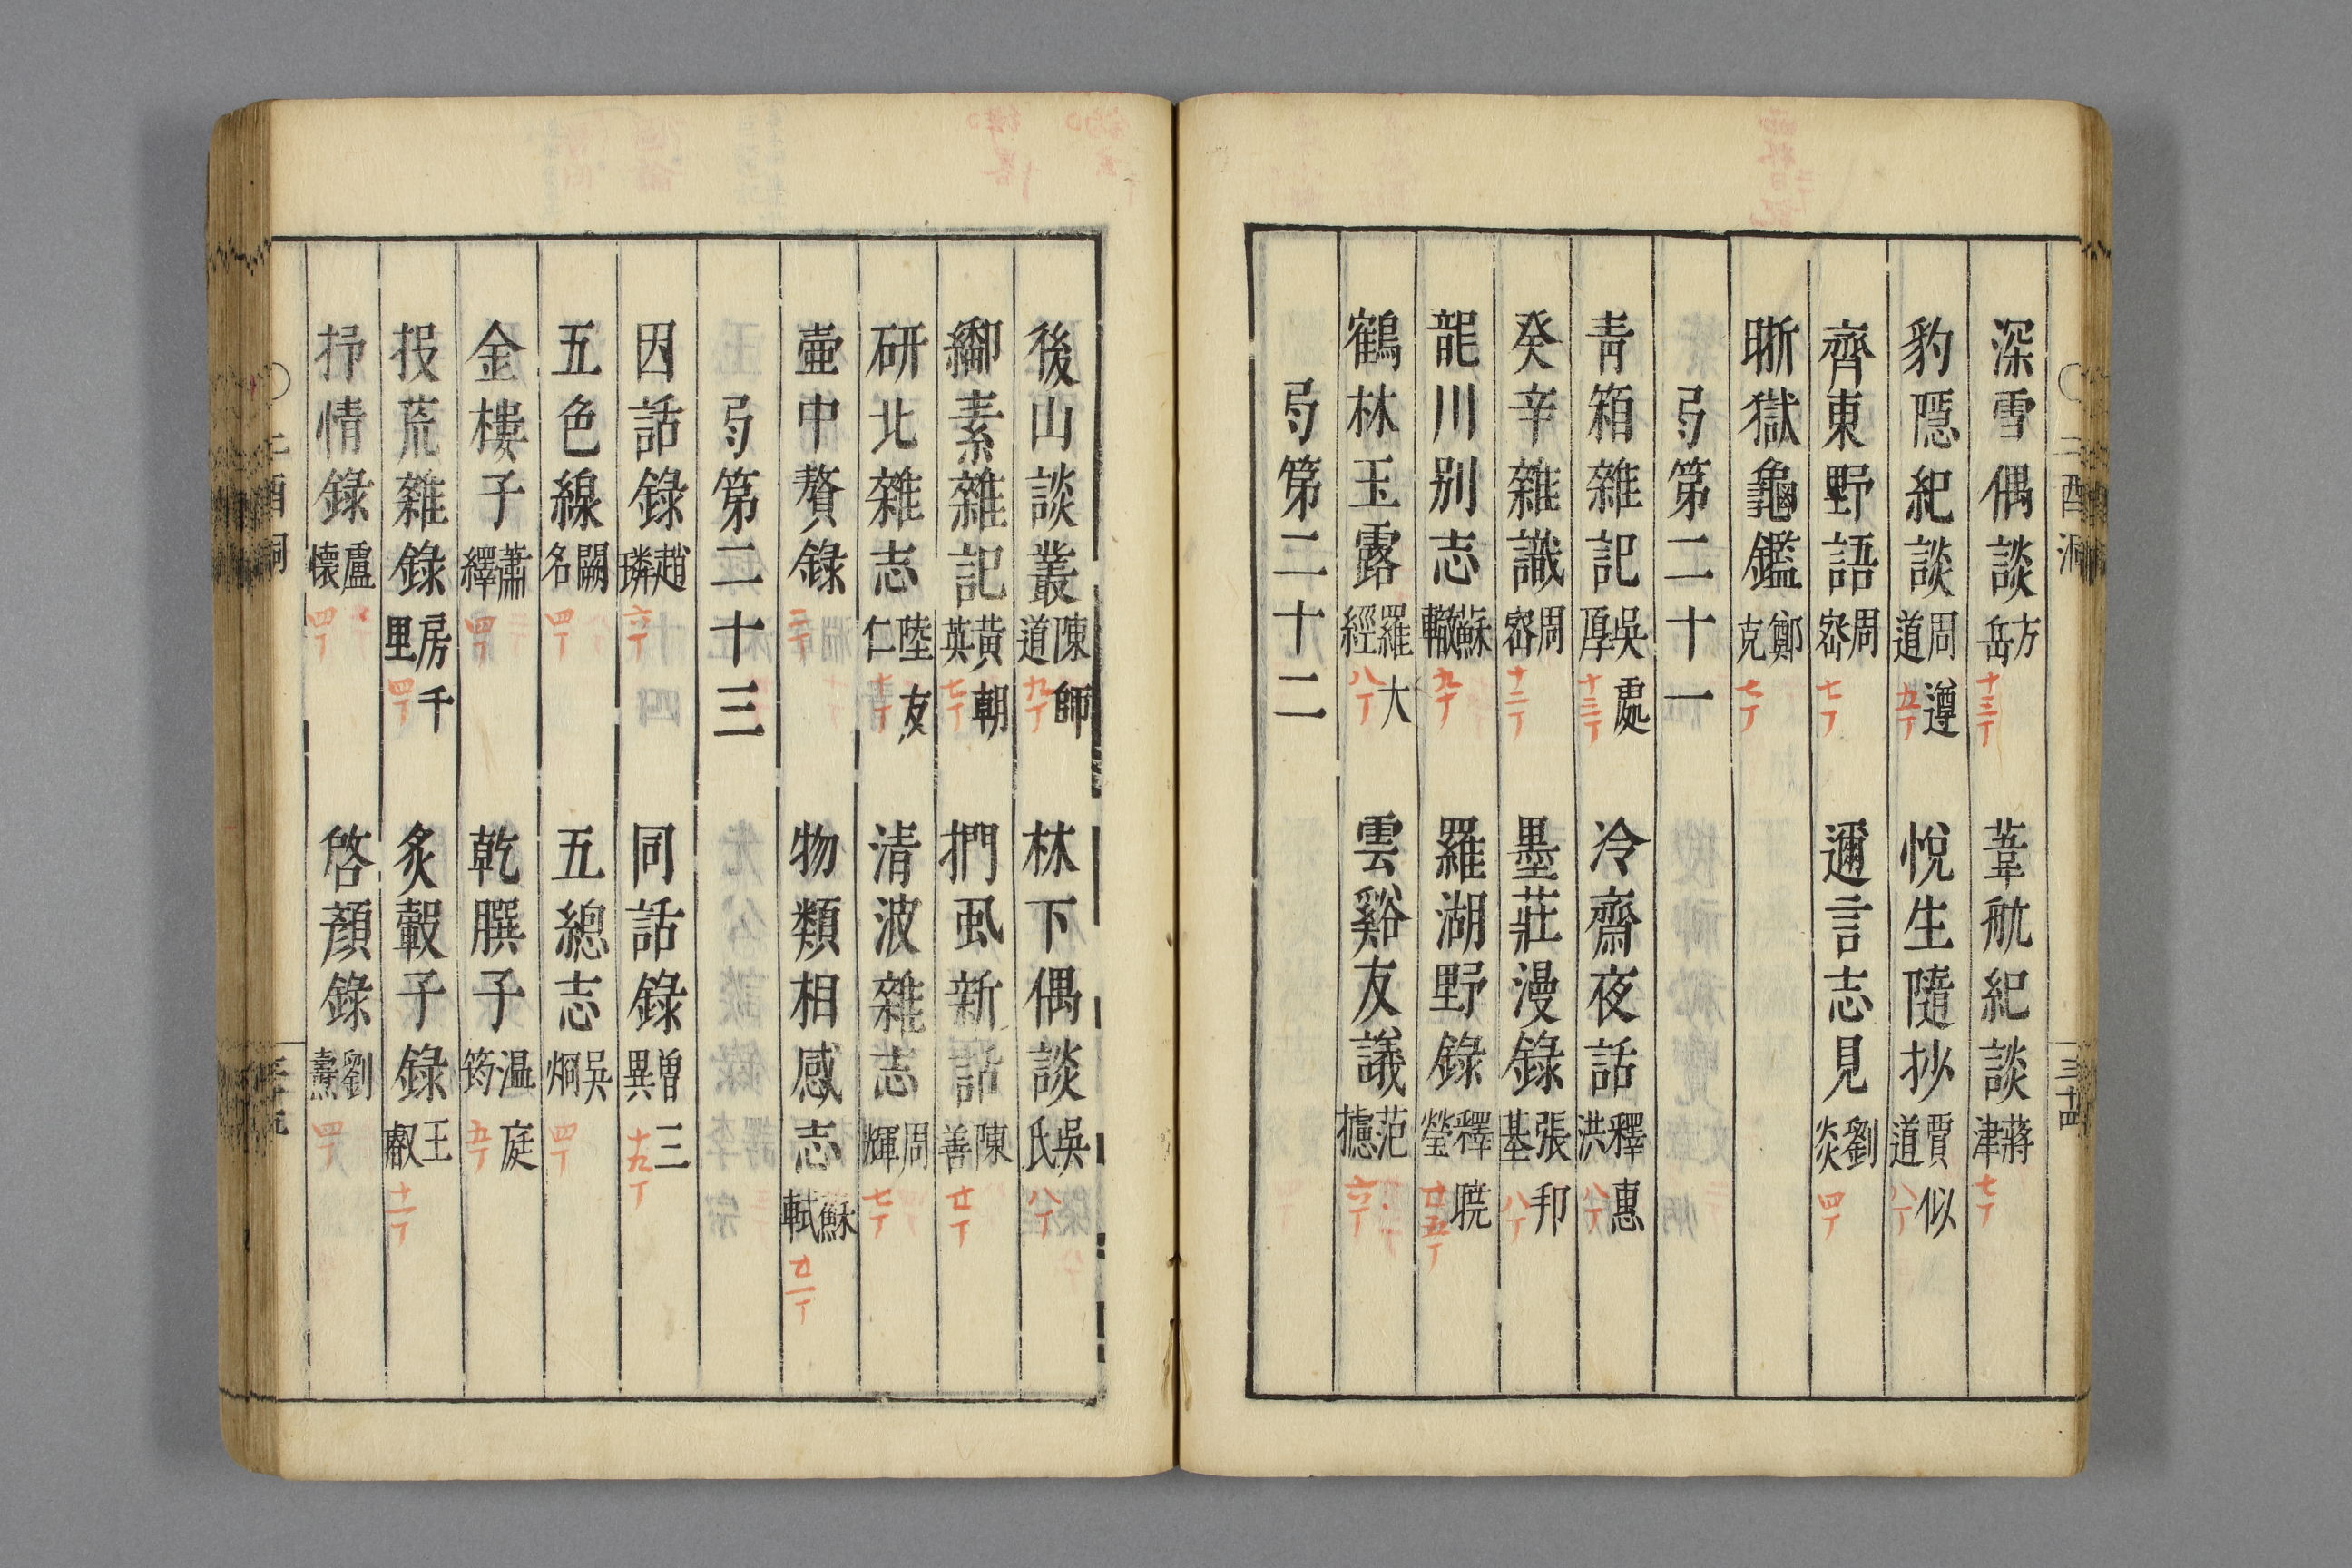 深雪偶談方岳十三丁 葦航紀談蔣津七丁
豹隱紀談周遵道九丁 悅生隨抄賈似道八丁
齊東野語周密七丁 邇言志見劉炎四丁
晣獄龜鑑鄭克七丁
弓第二十一
青箱雜記吳處厚十三丁 冷齋夜話釋惠洪八丁
癸辛雜識周密十二丁 墨莊漫錄張邦基八丁
龍川別志蘇轍九丁 羅湖野錄釋曉瑩廿五丁
鶴林玉露羅大經八丁 雲谿友議范攄六丁
弓第二十二
後山談叢陳師道九丁 林下偶談吳氏八丁
緗素雜記黃朝英七丁 捫虱新話陳善廿丁
研北雜志陸友仁七丁 清波雜志周輝七丁
壷中贅錄二丁 物類相感志蘇軾廿一丁
弓第二十三
因話錄趙璘六丁 同話錄曾三異十九丁
五色線闕名四丁 五總志吳炯四丁
金樓子蕭繹四丁 乾䐢子温庭筠五丁
投荒雜錄房千里四丁 炙轂子錄王叡十一丁
抒情錄盧懷四丁 啓顏錄劉燾四丁
二酉洞
三十四